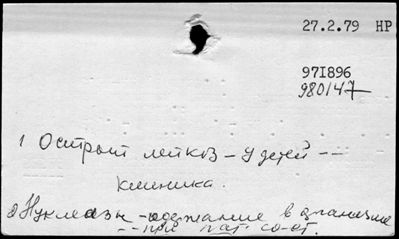 27.2.79 НР
97I896
980147
1 Острый лейкоз – у детей --
клиника.
2) Нуклеазы – содержание в
-- при пат. сост.